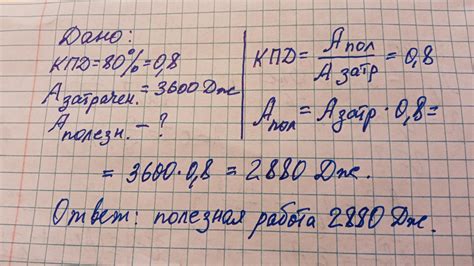 Дано:
КПД=80%=0,8
A затрачен. = 3600 Дж
A полезн. – ?
КПД = A пол / A затр = 0,8
A пол = A затр · 0,8 =
= 3600·0,8 = 2880 Дж.
Ответ: полезная работа 2880 Дж.